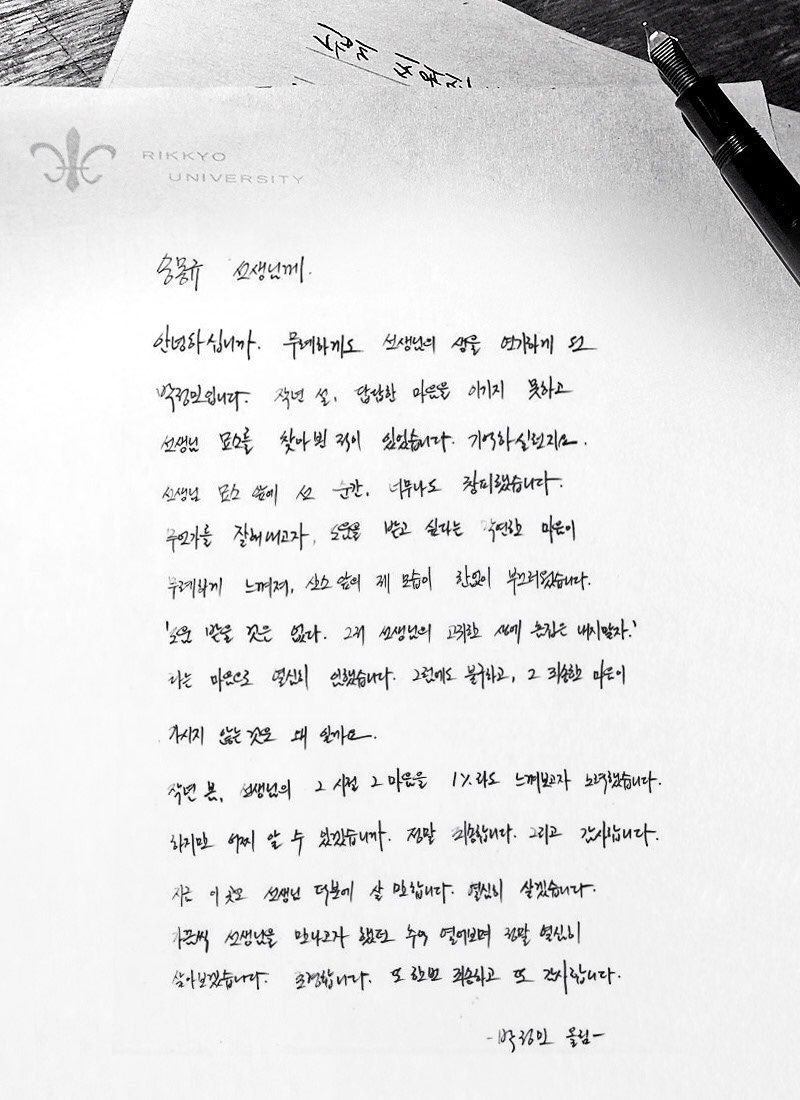 RIKKYO
UNIVERSITY
송몽규 선생님께.
안녕하십니까. 무례하게도 선생님의 생을 연기하게 된
박정민입니다. 작년 설, 답답한 마음을 이기지 못하고
선생님 묘소를 찾아 뵌 적이 있었습니다. 기억하실런지요.
선생님 묘소 앞에 선 순간, 너무나도 창피했습니다.
무언가를 잘해내고자, 도움을 받고 싶다는 막연한 마음이
무례하게 느껴져, 산소 앞의 제 모습이 한없이 부끄러웠습니다.
'도움 받을 것은 없다. 그저 선생님의 고귀한 생에 흠집은 내지말자.'
라는 마음으로 열심히 연기했습니다. 그럼에도 불구하고, 그 죄송한 마음이
가시지 않는 것은 왜 일까요.
작년 봄, 선생님의 그 시절 그 마음을 1%라도 느껴보고자 노력했습니다.
하지만 어찌 알 수 있겠습니까. 정말 죄송합니다. 그리고 감사합니다.
지금 이 곳은 선생님 덕분에 살 만합니다. 열심히 살겠습니다.
가끔씩 선생님을 만나고자 했던 추억 열어보며 정말 열심히
살아보겠습니다. 존경합니다. 또 한번 죄송하고 또 감사합니다.
-박정민 올림-